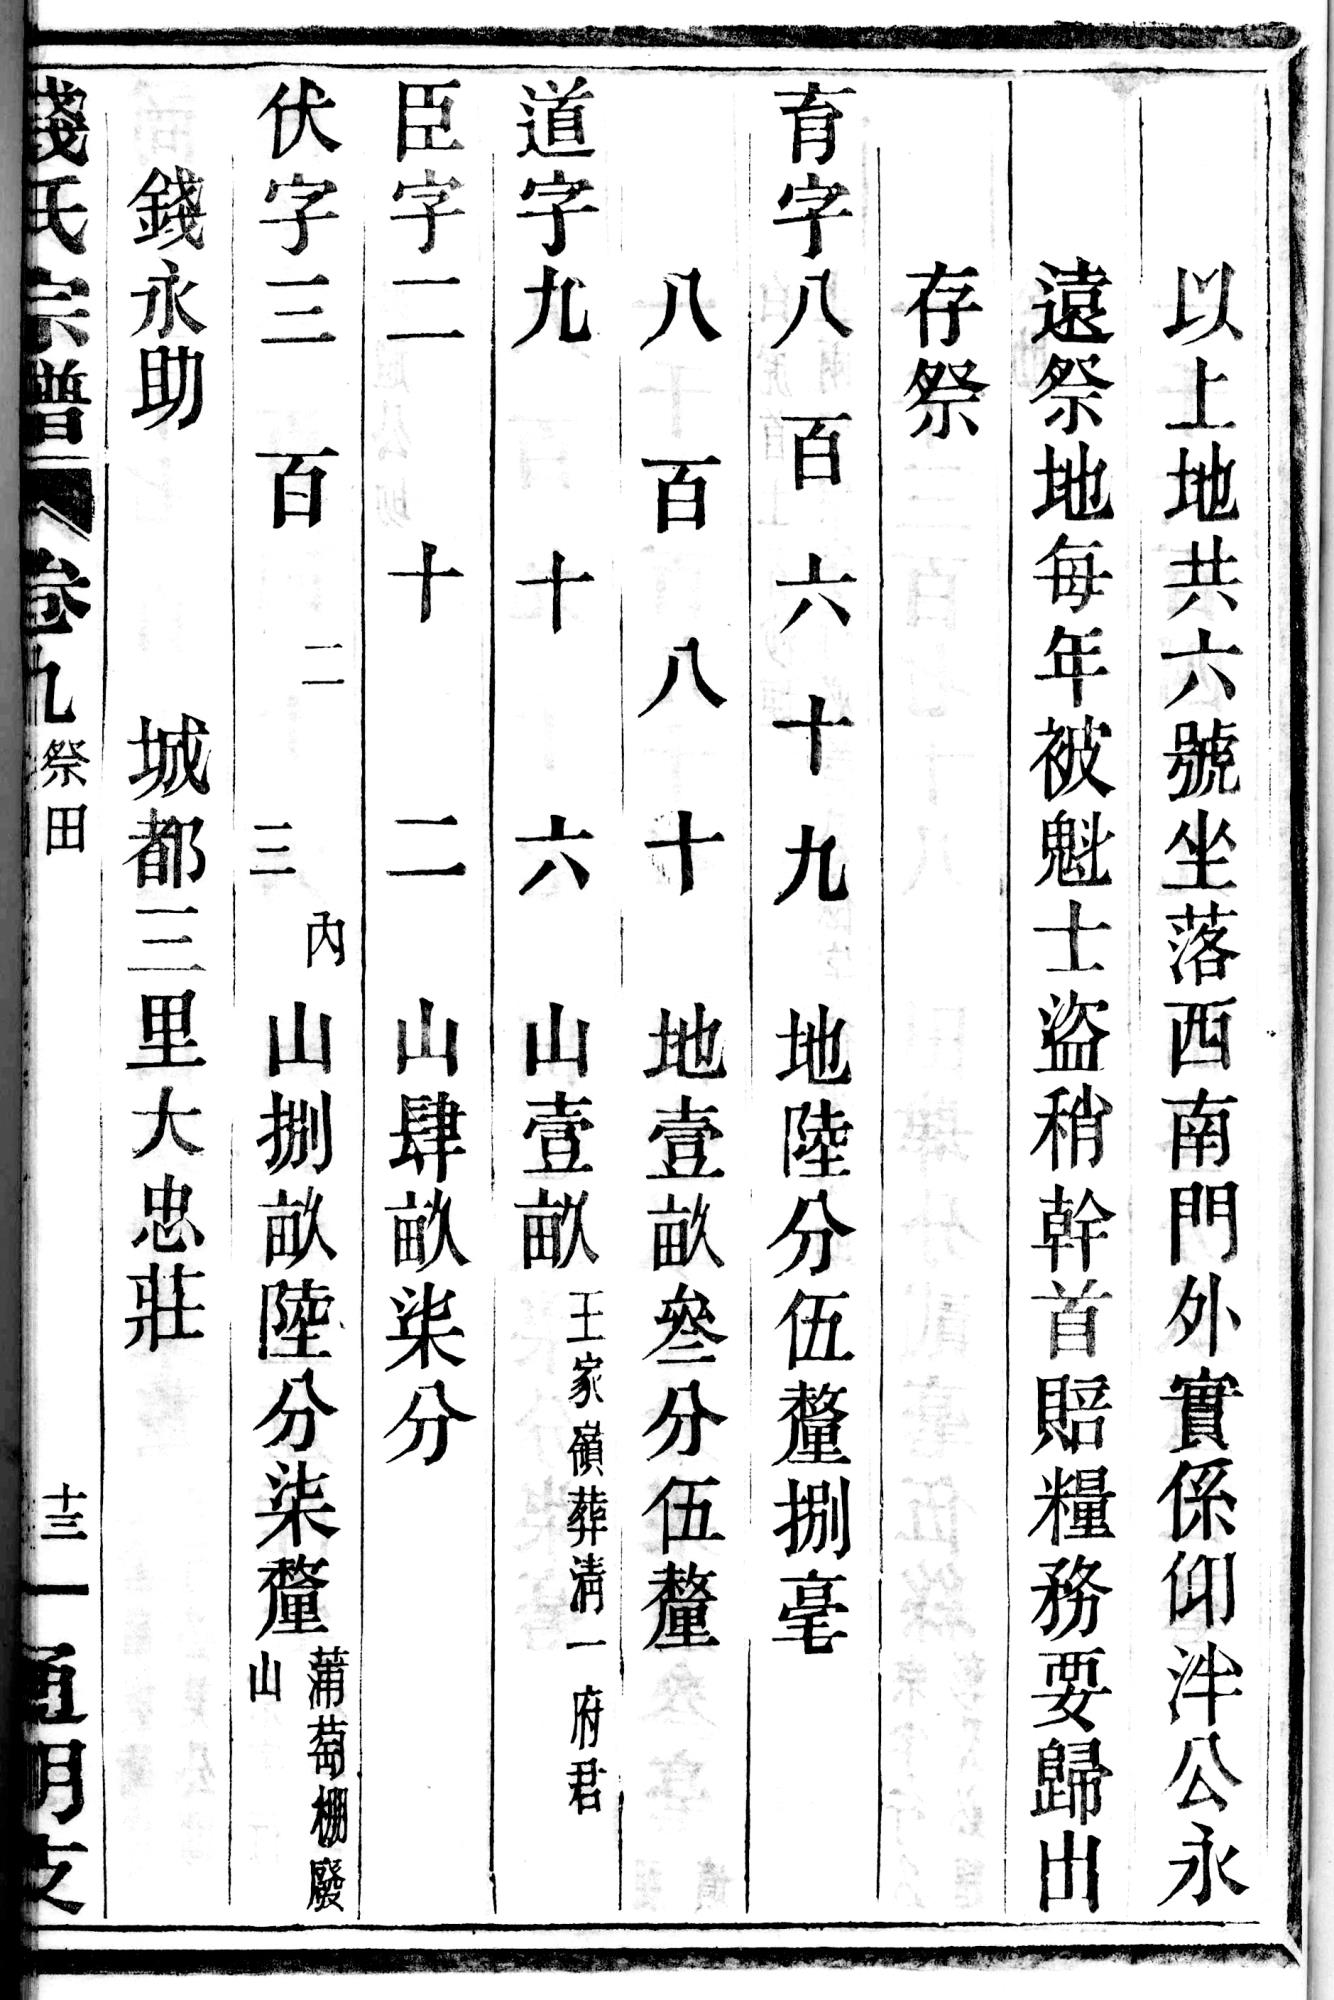 以上地共六號坐落西南門外實係仰泮公永
遠祭地每年被魁士盜稍幹首賠糧務要歸出
存祭
育字八百六十九　地陸分伍釐捌毫
八百八十　地壹畝叁分伍釐
道字九十六　山壹畝王家嶺葬淸一府君
臣字二十二　山肆畝柒分
伏字三百二三內　山捌畝陸分柒釐蒲萄棚廢山
錢永助　城都三里大忠莊
錢氏宗譜　卷九　祭田　十三　通明支